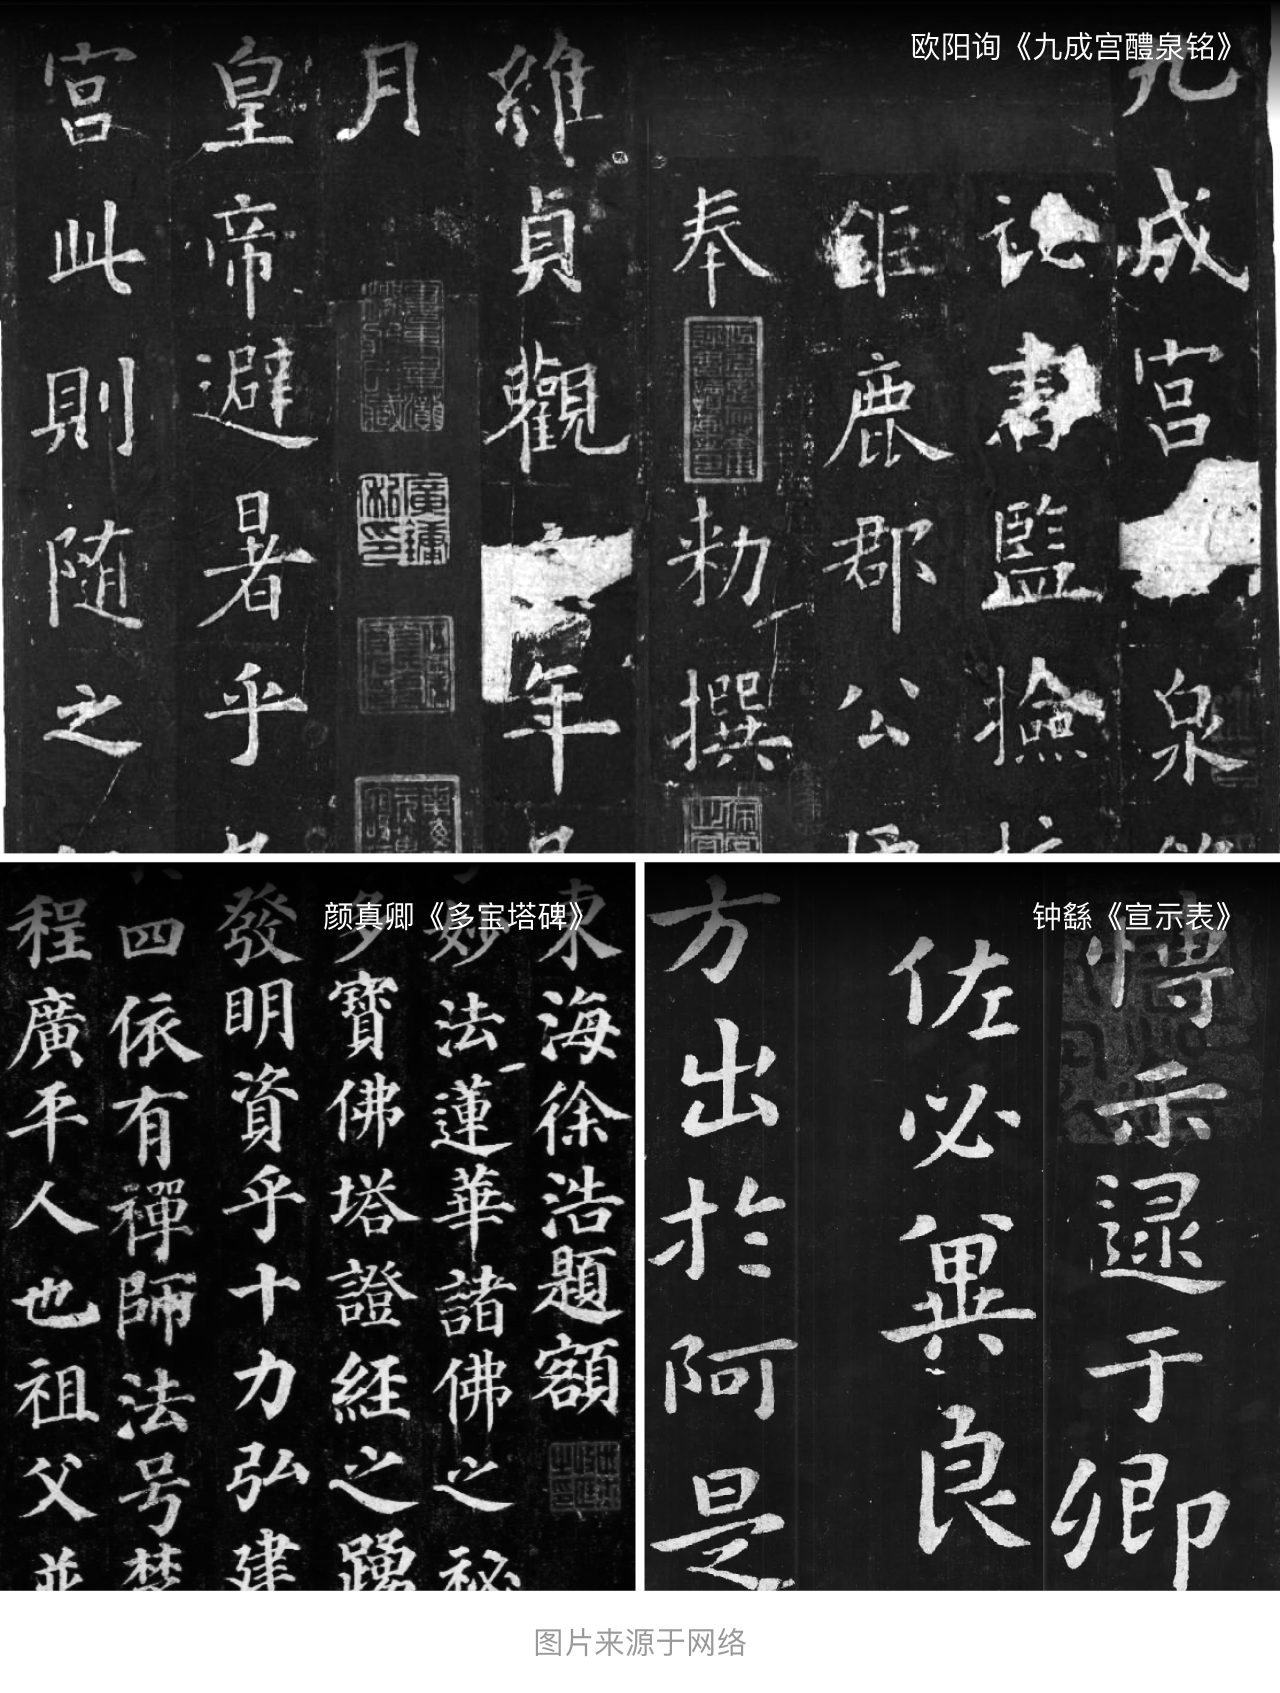 欧阳询《九成宫醴泉铭》
九成宫
泉
監撿
鉅鹿郡公
奉
勑撰
維貞觀
年
月
皇帝避暑乎
宫此則随之
颜真卿《多宝塔碑》
東海徐浩題額
妙法蓮華諸佛之祕
多寶佛塔證經之踴
發明資乎十力弘建
四依有禪師法号楚
程廣平人也祖父並
钟繇《宣示表》
示逯于卿
佐必異良
方出於阿是
图片来源于网络